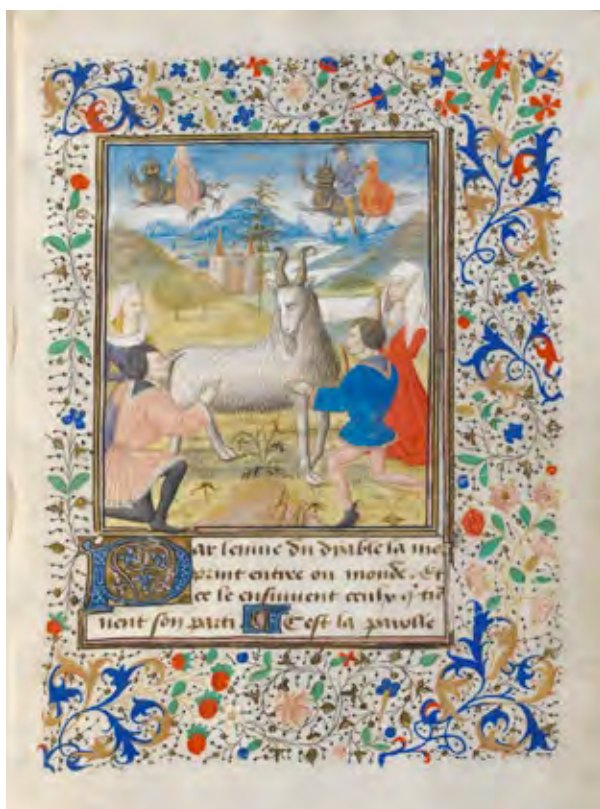 Par lenuie du dyable la mo
print entree ou monde. Et
ce le ensuiuent ceulx q̄ tiē
nent son parti C Cest la parolle